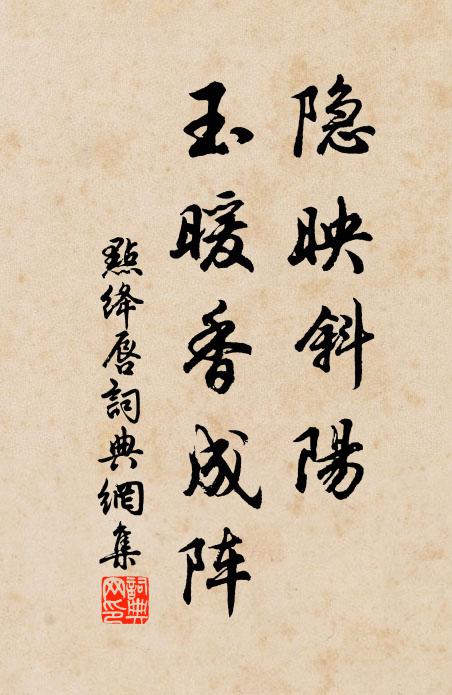 隐映斜陽
玉暖香成阵
點绛唇詞典網集
詞典网印